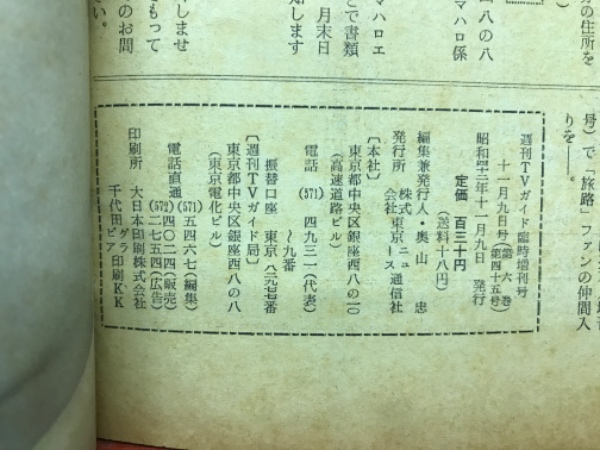 方の住所を
四八の八
マハロ係
マハロエ
こで書類
月末日
知します
しませ
をもって
のお問
い。
号）で「旅路」ファンの仲間入
りを――。
週刊TVガイド臨時増刊号
十一月九日号（第六巻第四十五号）
昭和四十二年十一月九日　発行
定価　百三十円
（送料十八円）
編集兼発行人・奥山　忠
発行所　株式会社東京ニュース通信社
〔本社〕
東京都中央区銀座西八の一〇
（高速道路ビル）
電話　(571)　四九三一（代表）
〜九番
振替口座　東京　八二九七七番
〔週刊TVガイド局〕
東京都中央区銀座西八の八
（東京電化ビル）
電話直通(571)五四六七（編集）
(571)四〇二四（販売）
(572)二七五四（広告）
印刷所　大日本印刷株式会社
千代田グラビア印刷KK